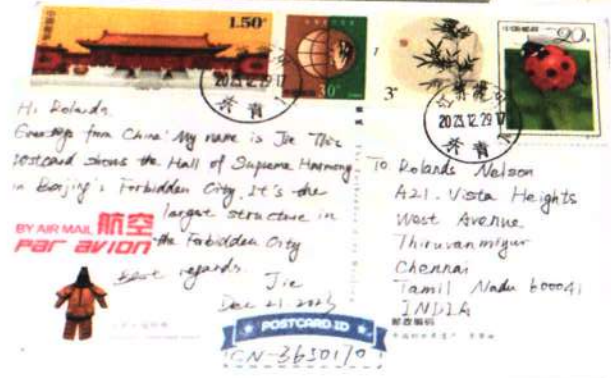 1.50元
中国邮政
30分
3元
中国邮政
20分
2023.12.29.17
2023.12.29.17
Hi Rolands.
Greetings from China! My name is Jie This
postcard shows the Hall of Supreme Harmony
in Beijing's Forbidden City. It's the
largest structure in
the Forbidden City
Best regards.
Jie
Dec 21. 2023
BY AIR MAIL 航空
Par avion
To Rolands Nelson
A21. Vista Heights
West Avenue
Thiruvanmiyur
Chennai
Tamil Nadu 600041
INDIA
邮政编码
POSTCARD ID
CN-3650170